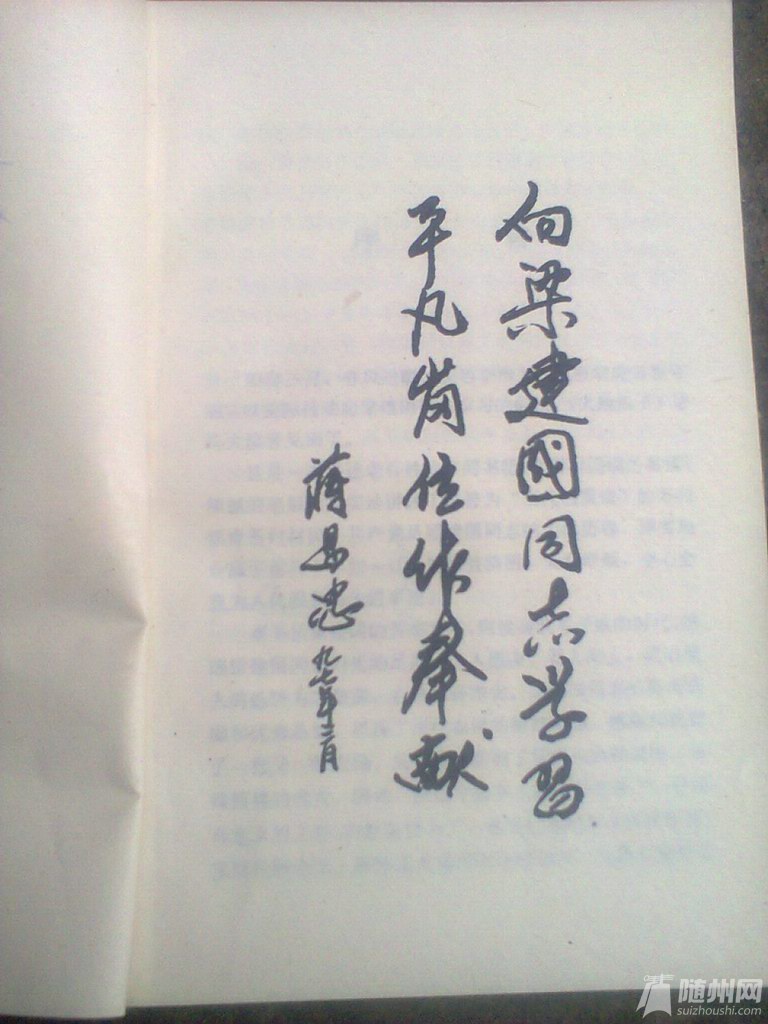 向梁建國同志学習
平凡岗位作奉献
蒋昌忠
九七年三月
随州网
suizhoushi.com